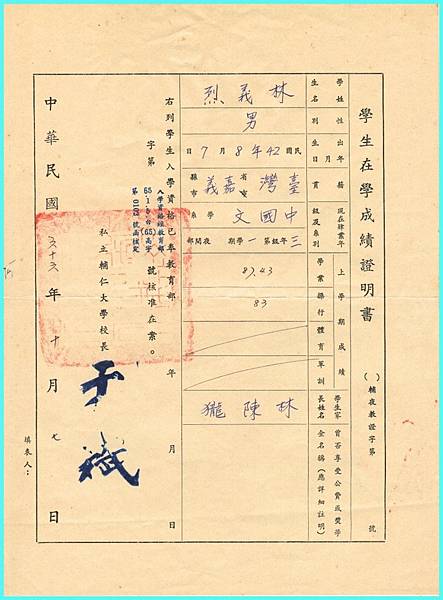 學生在學成績證明書
( )輔夜教證字第 號
學生姓名 林義烈
性別 男
出生年月日 民國42年8月7日
籍貫 臺灣省嘉義縣市
現在肄業年級及系別 三年級第一學期夜間部中國文學系
上學期成績
學業 87.43
操行 83
體育
軍訓
學生家長姓名 林陳
曾否享受公費或獎學金名稱(應詳細註明)
右列學生入學資格已奉教育部 年 月 日
字第 號核准在案。
入學資格經教育部
65.1.5台(65)高字
第0128號函核定
私立輔仁大學校長
于斌
中華民國 六十六 年 十 月 七 日
填表人: